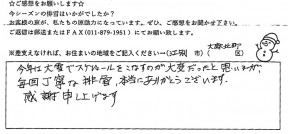 ☆ご感想をお願いします☆
今シーズンの排雪はいかがでしたか？
お客様の声が、私たちの原動力になっています。ぜひ、ご感想をお聞かせ下さい。
ご返信は郵送またはFAX（011-879-1951）にてお願い致します。
※差支えなければ、お住まいの地域をご記入ください→（江別 市）（大麻北町）
今年は大雪でスケジュールをこなすのが大変だったと思いますが、
毎回丁寧な排雪、本当にありがとうございます。
感謝申し上げます